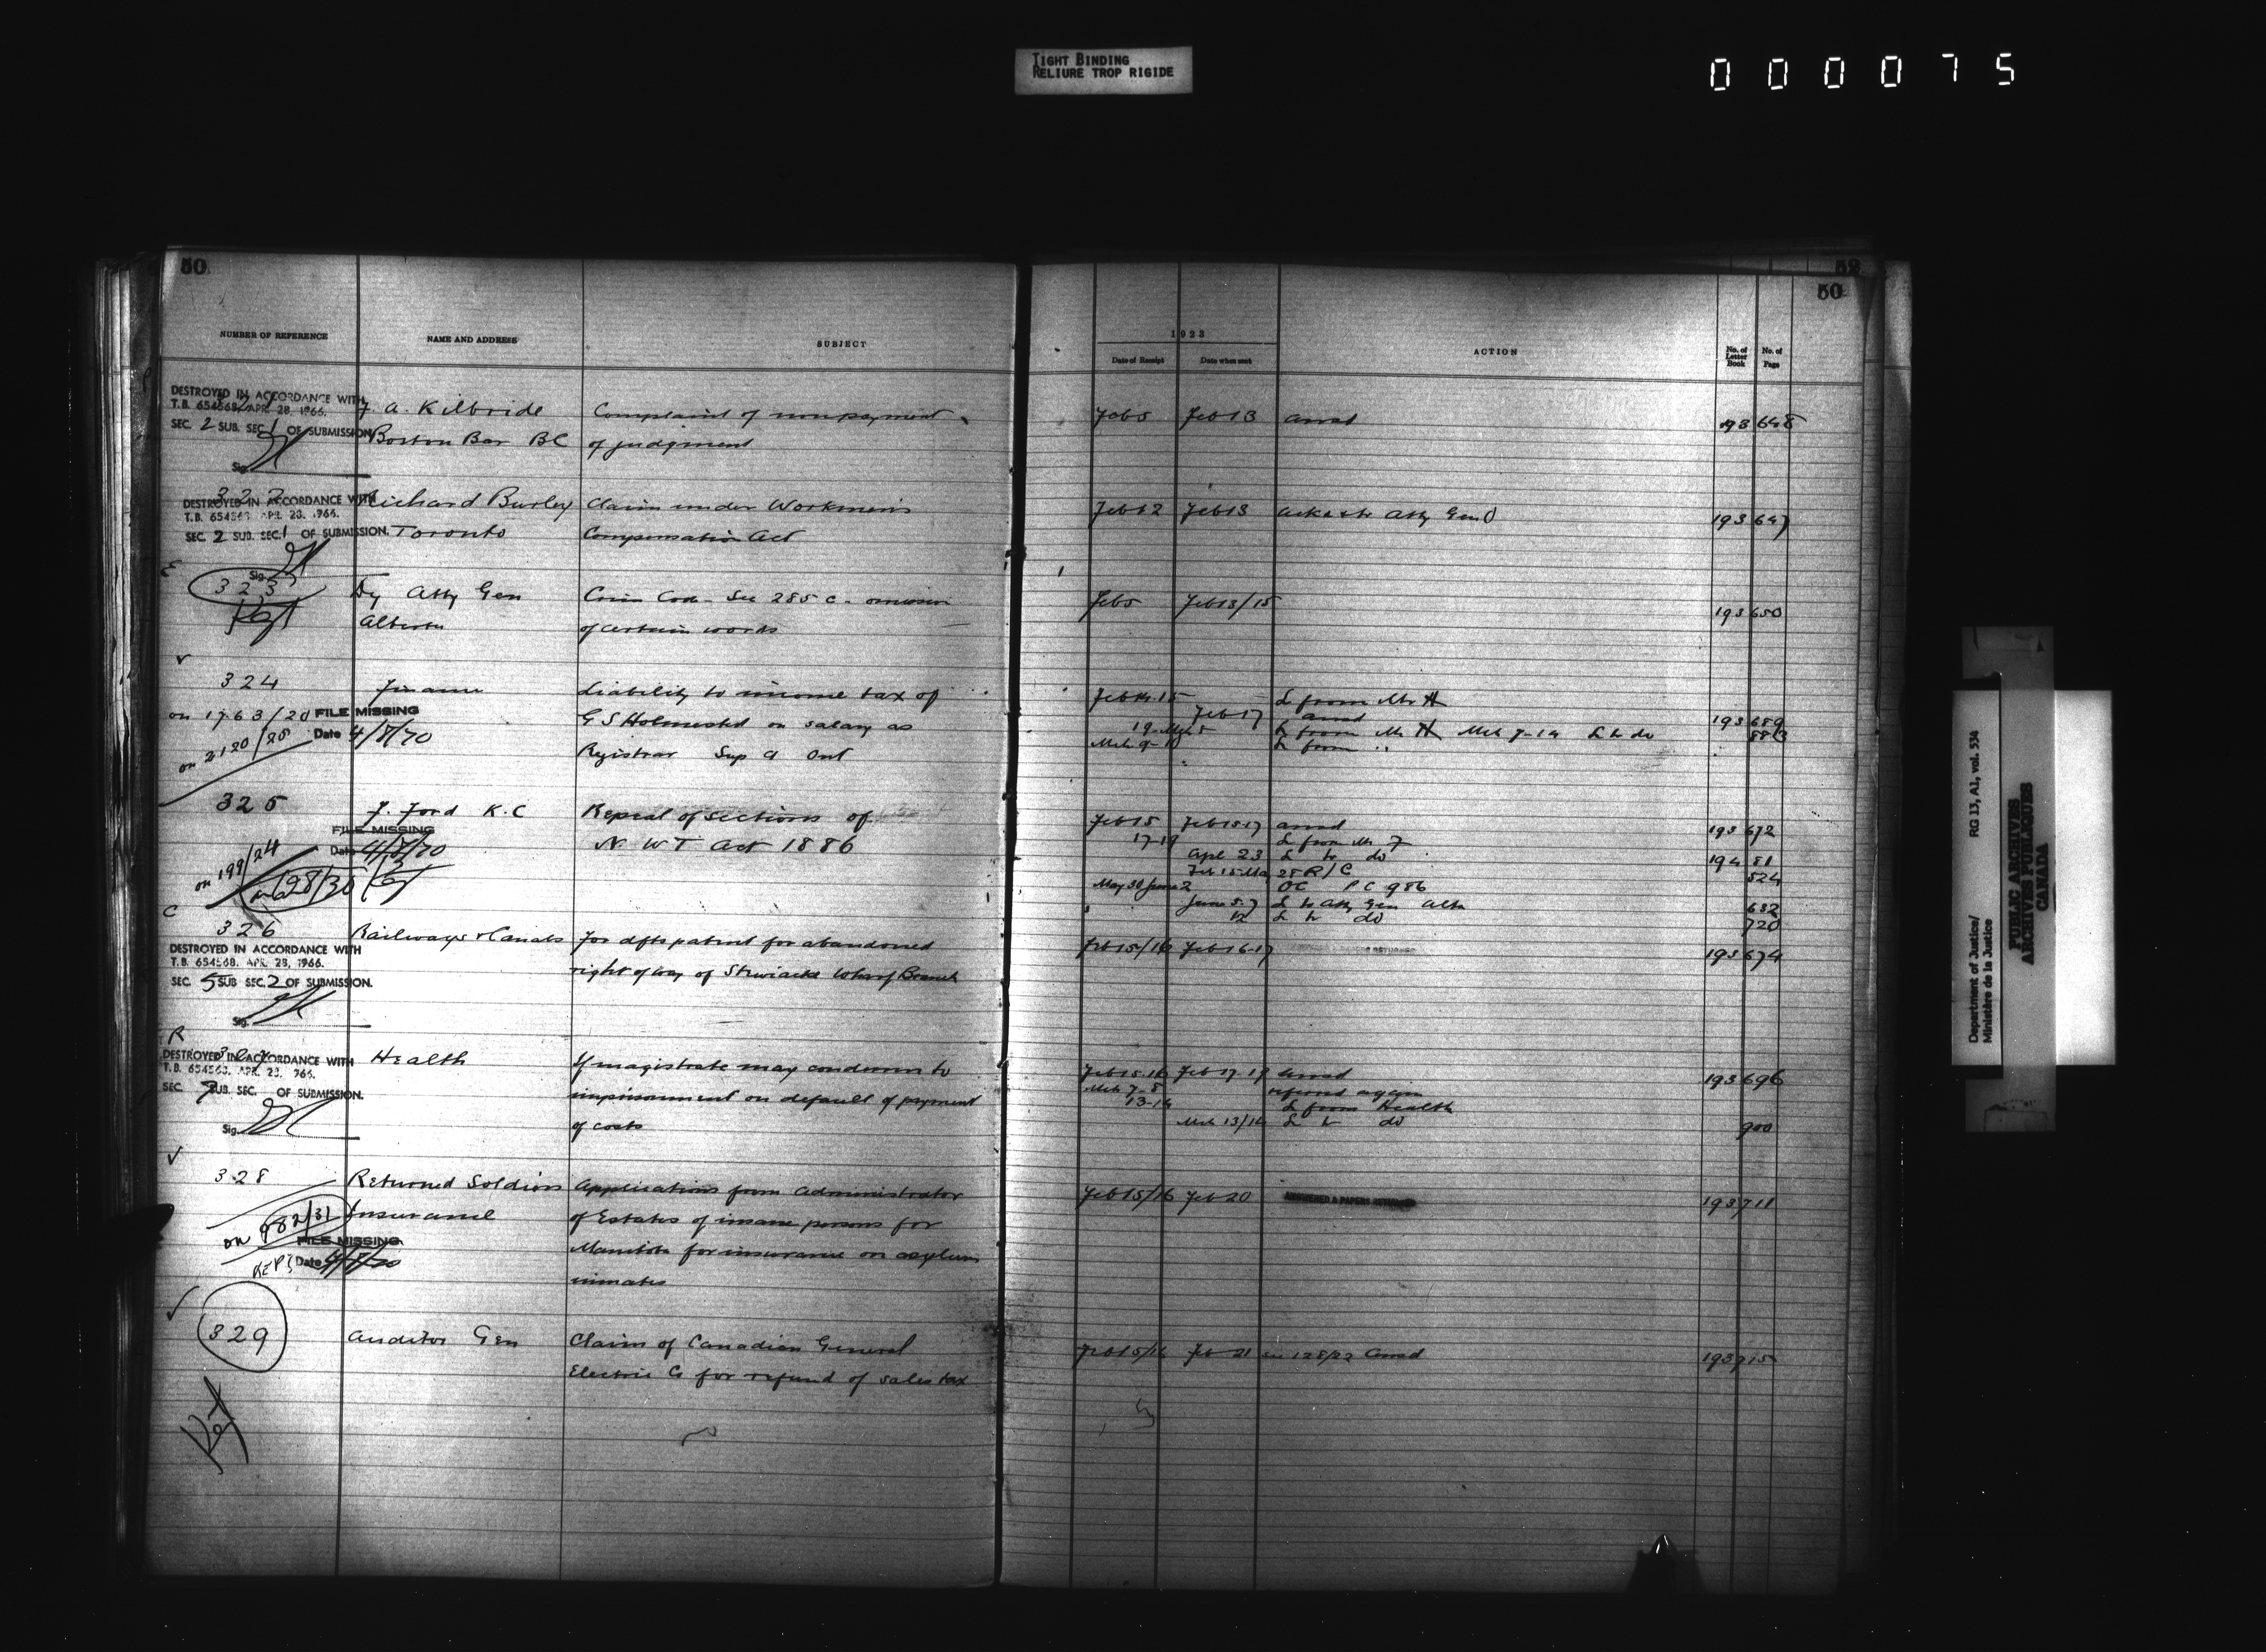 TIGHT BINDING
RELIURE TROP RIGIDE
000075
50
50
NUMBER OF REFERENCE NAME AND ADDRESS SUBJECT
1923
Date of Receipt Date when sent ACTION No. of Letter Book No. of Page
DESTROYED IN ACCORDANCE WITH
T.B. 654568, APR. 28, 1966.
SEC. 2 SUB. SEC. 1 OF SUBMISSION
Sig.
J. A. Kilbride Complaint of nonpayment Feb 5 Feb 13 ansd 193 648
Boston Bar BC of judgment
322
DESTROYED IN ACCORDANCE WITH
T.B. 654568 APR. 28, 1966.
SEC. 2 SUB. SEC. 1 OF SUBMISSION.
Sig.
Richard Burley Claim under Workmen's Feb 12 Feb 13 Atty Gen O 193 647
Toronto Compensation Act
E
323 Dy Atty Gen Crim Code - Sec 285 c - omission Feb 5 Feb 13/15 193 650
Ket Alberta of certain words
324 Finance Liability to income tax of Feb 14-15 L from Mr H
on 1763/20 FILE MISSING G S Holmested on salary as Feb 17 ansd 193 689
on 2120/25 Date 4/8/70 L from Mr H Mch 7-14 L to do 883
Registrar Sup Ct Ont Mch 9-10 L from ..
325 F. Ford K.C Repeal of sections of Feb 15 Feb 15-17 ansd 193 672
FILE MISSING N W T Act 1886 17-19 L from Mr F
Date 4/8/70 Apl 23 L to do 194 81
on 199/24 R/C 524
on 628/30 Ket May 30 June 2 OC PC 986
June 5-7 L to Atty Gen Alta 652
12 L to do 720
C
326 Railways & Canals For dfts patent for abandoned Feb 15/16 Feb 16-17 193 674
DESTROYED IN ACCORDANCE WITH
T.B. 654568. APR. 28, 1966. right of way of Stewiacke Wharf Branch
SEC. 5 SUB SEC. 2 OF SUBMISSION.
Sig.
R
DESTROYED IN ACCORDANCE WITH
T.B. 654568. APR. 28, 1966.
SEC. 7 SUB. SEC. OF SUBMISSION.
Sig.
Health If magistrate may condemn to Feb 15-16 Feb 17-19 ansd 193 696
imprisonment on default of payment Mch 7-8 referred again
13-14 L from Health
of costs Mch 13/14 L to do 900
328 Returned Soldiers Applications from Administrator Feb 15/16 Feb 20 ANSWERED & PAPERS RETURNED 193 711
on 982/31 Insurance of Estates of insane persons for
FILE MISSING Manitoba for insurance on asylum
KEPT Date 4/8/70 inmates
329 Auditor Gen Claim of Canadian General Feb 15/16 Feb 21 see 128/22 ansd 193 715
Electric Co for refund of sales tax
Ket
Department of Justice/
Ministère de la Justice
RG 13, A1, vol. 534
PUBLIC ARCHIVES
ARCHIVES PUBLIQUES
CANADA